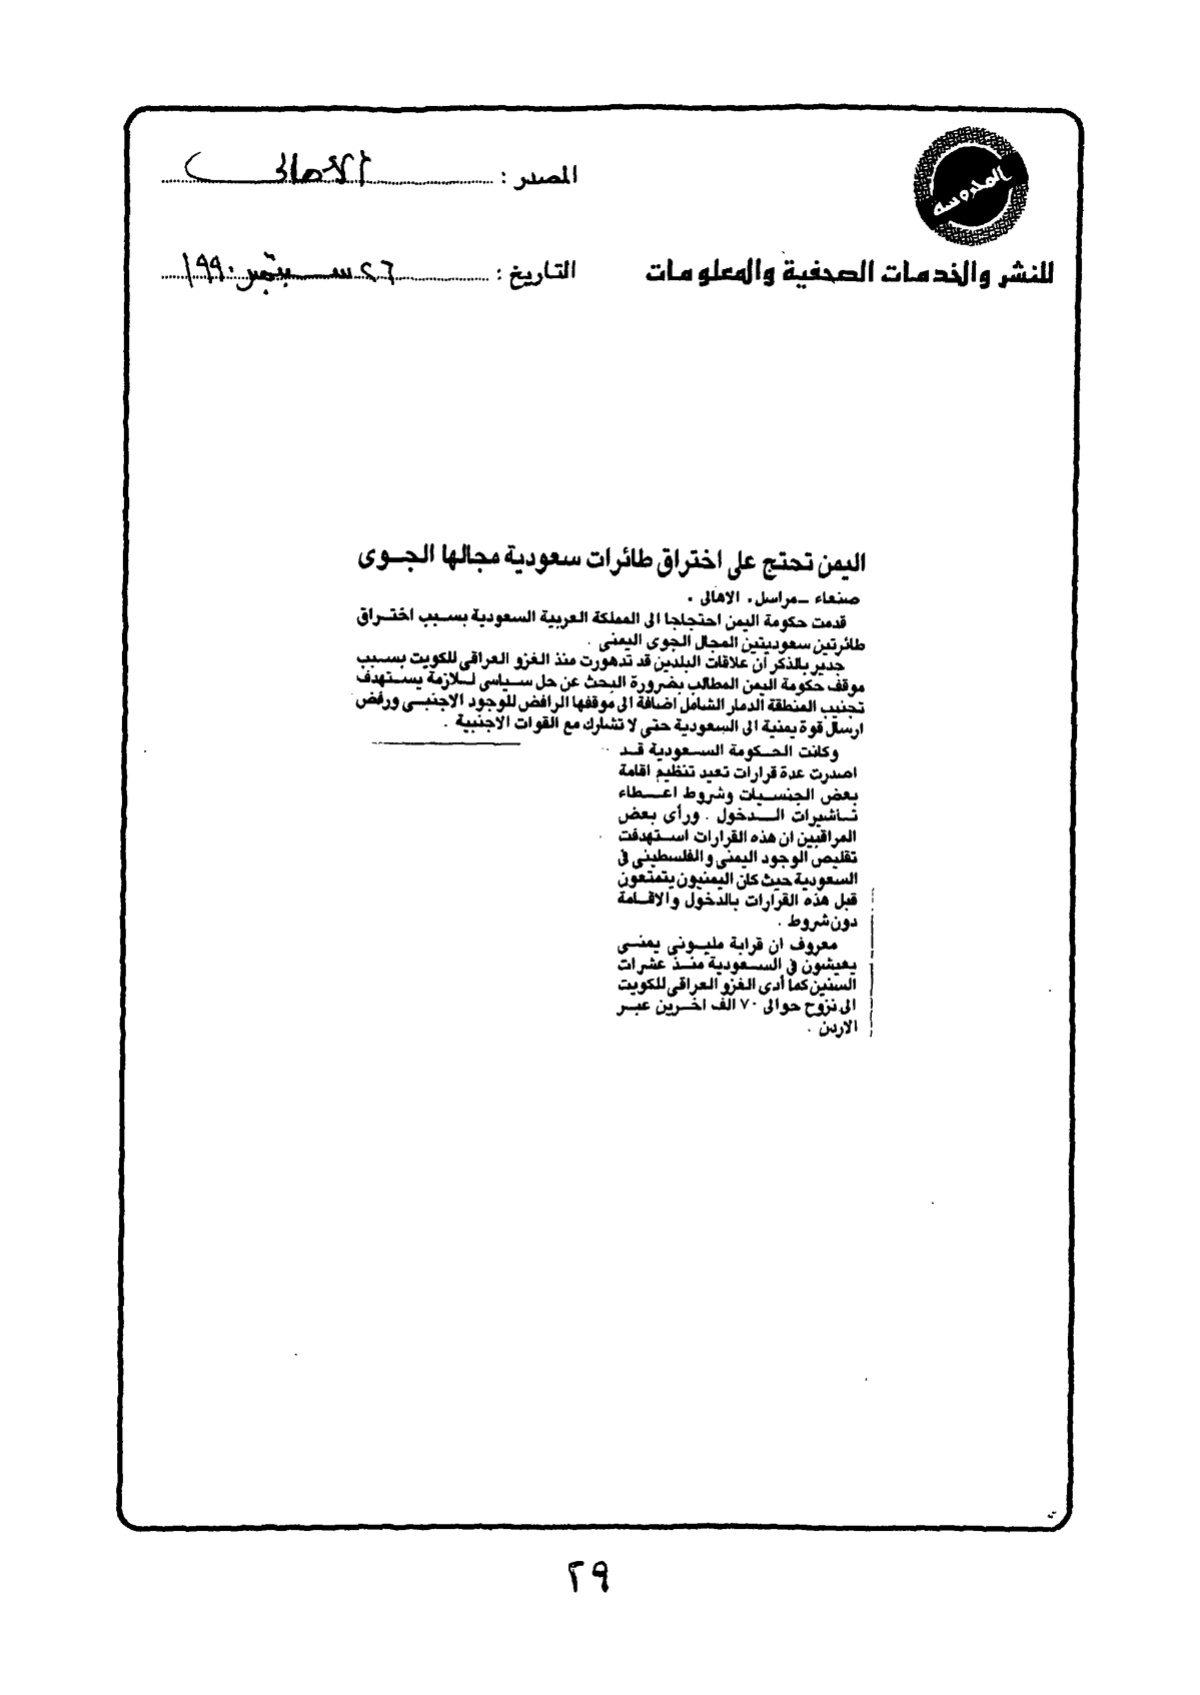 المحروسة
المصدر : الأهالى
للنشر والخدمات الصحفية والمعلومات
التاريخ : ٢٦ سبتمبر ١٩٩٠
اليمن تحتج على اختراق طائرات سعودية مجالها الجـوى
صنعاء ــ مراسل . الاهالى .
قدمت حكومة اليمن احتجاجا الى المملكة العربية السعودية بسـبب اختـراق
طائرتين سعوديتين المجال الجوى اليمنى .
جدير بالذكر أن علاقات البلدين قد تدهورت منذ الغزو العراقى للكويت بسـبب
موقف حكومة اليمن المطالب بضرورة البحث عن حل سـياسى لـلازمة يسـتهدف
تجنيب المنطقة الدمار الشامل اضافة الى موقفها الرافض للوجود الاجنبـى ورفض
ارسال قوة يمنية الى السعودية حتى لا تشارك مع القوات الاجنبية .
وكانت الحـكومة السـعودية قـد
اصدرت عدة قرارات تعيد تنظيم اقامة
بعض الجنسـيات وشروط اعـطاء
تـاشيرات الـدخول . ورأى بعض
المراقبين ان هذه القرارات اسـتهدفت
تقليص الوجود اليمنى والفلسطينى فى
السعودية حيث كان اليمنيون يتمتعون
قبل هذه القرارات بالدخول والاقـامة
دون شروط .
معروف ان قرابة مليـونى يمنـى
يعيشون فى السـعودية منـذ عشرات
السنين كما أدى الغزو العراقى للكويت
الى نزوح حوالى ٧٠ الف اخـرين عبـر
الاردن .
٢٩